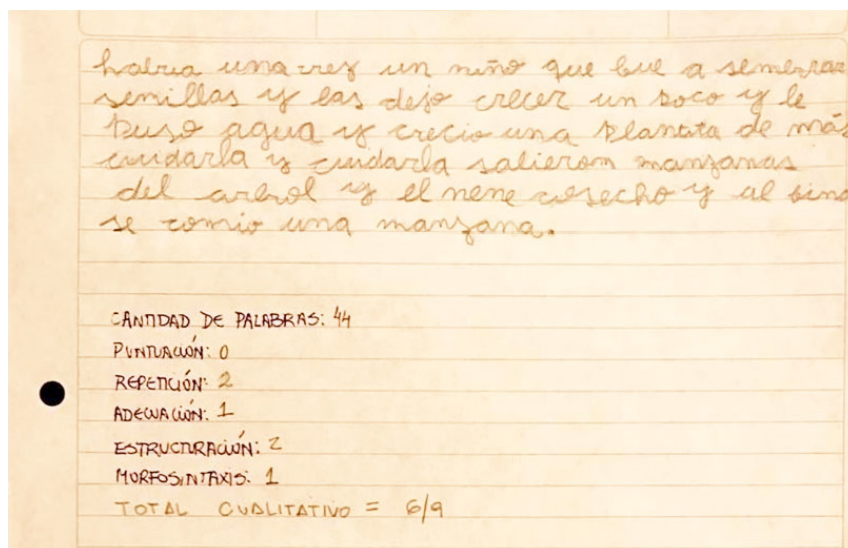 habia una vez un niño que fue a sembrar
semillas y las dejo crecer un poco y le
puso agua y crecio una plantita de más
cuidarla y cuidarla salieron manzanas
del arbol y el nene cosecho y al fina
se comio una manzana.
CANTIDAD DE PALABRAS: 44
PUNTUACIÓN: 0
REPETICIÓN: 2
ADECUACIÓN: 1
ESTRUCTURACIÓN: 2
MORFOSINTAXIS: 1
TOTAL CUALITATIVO = 6/9